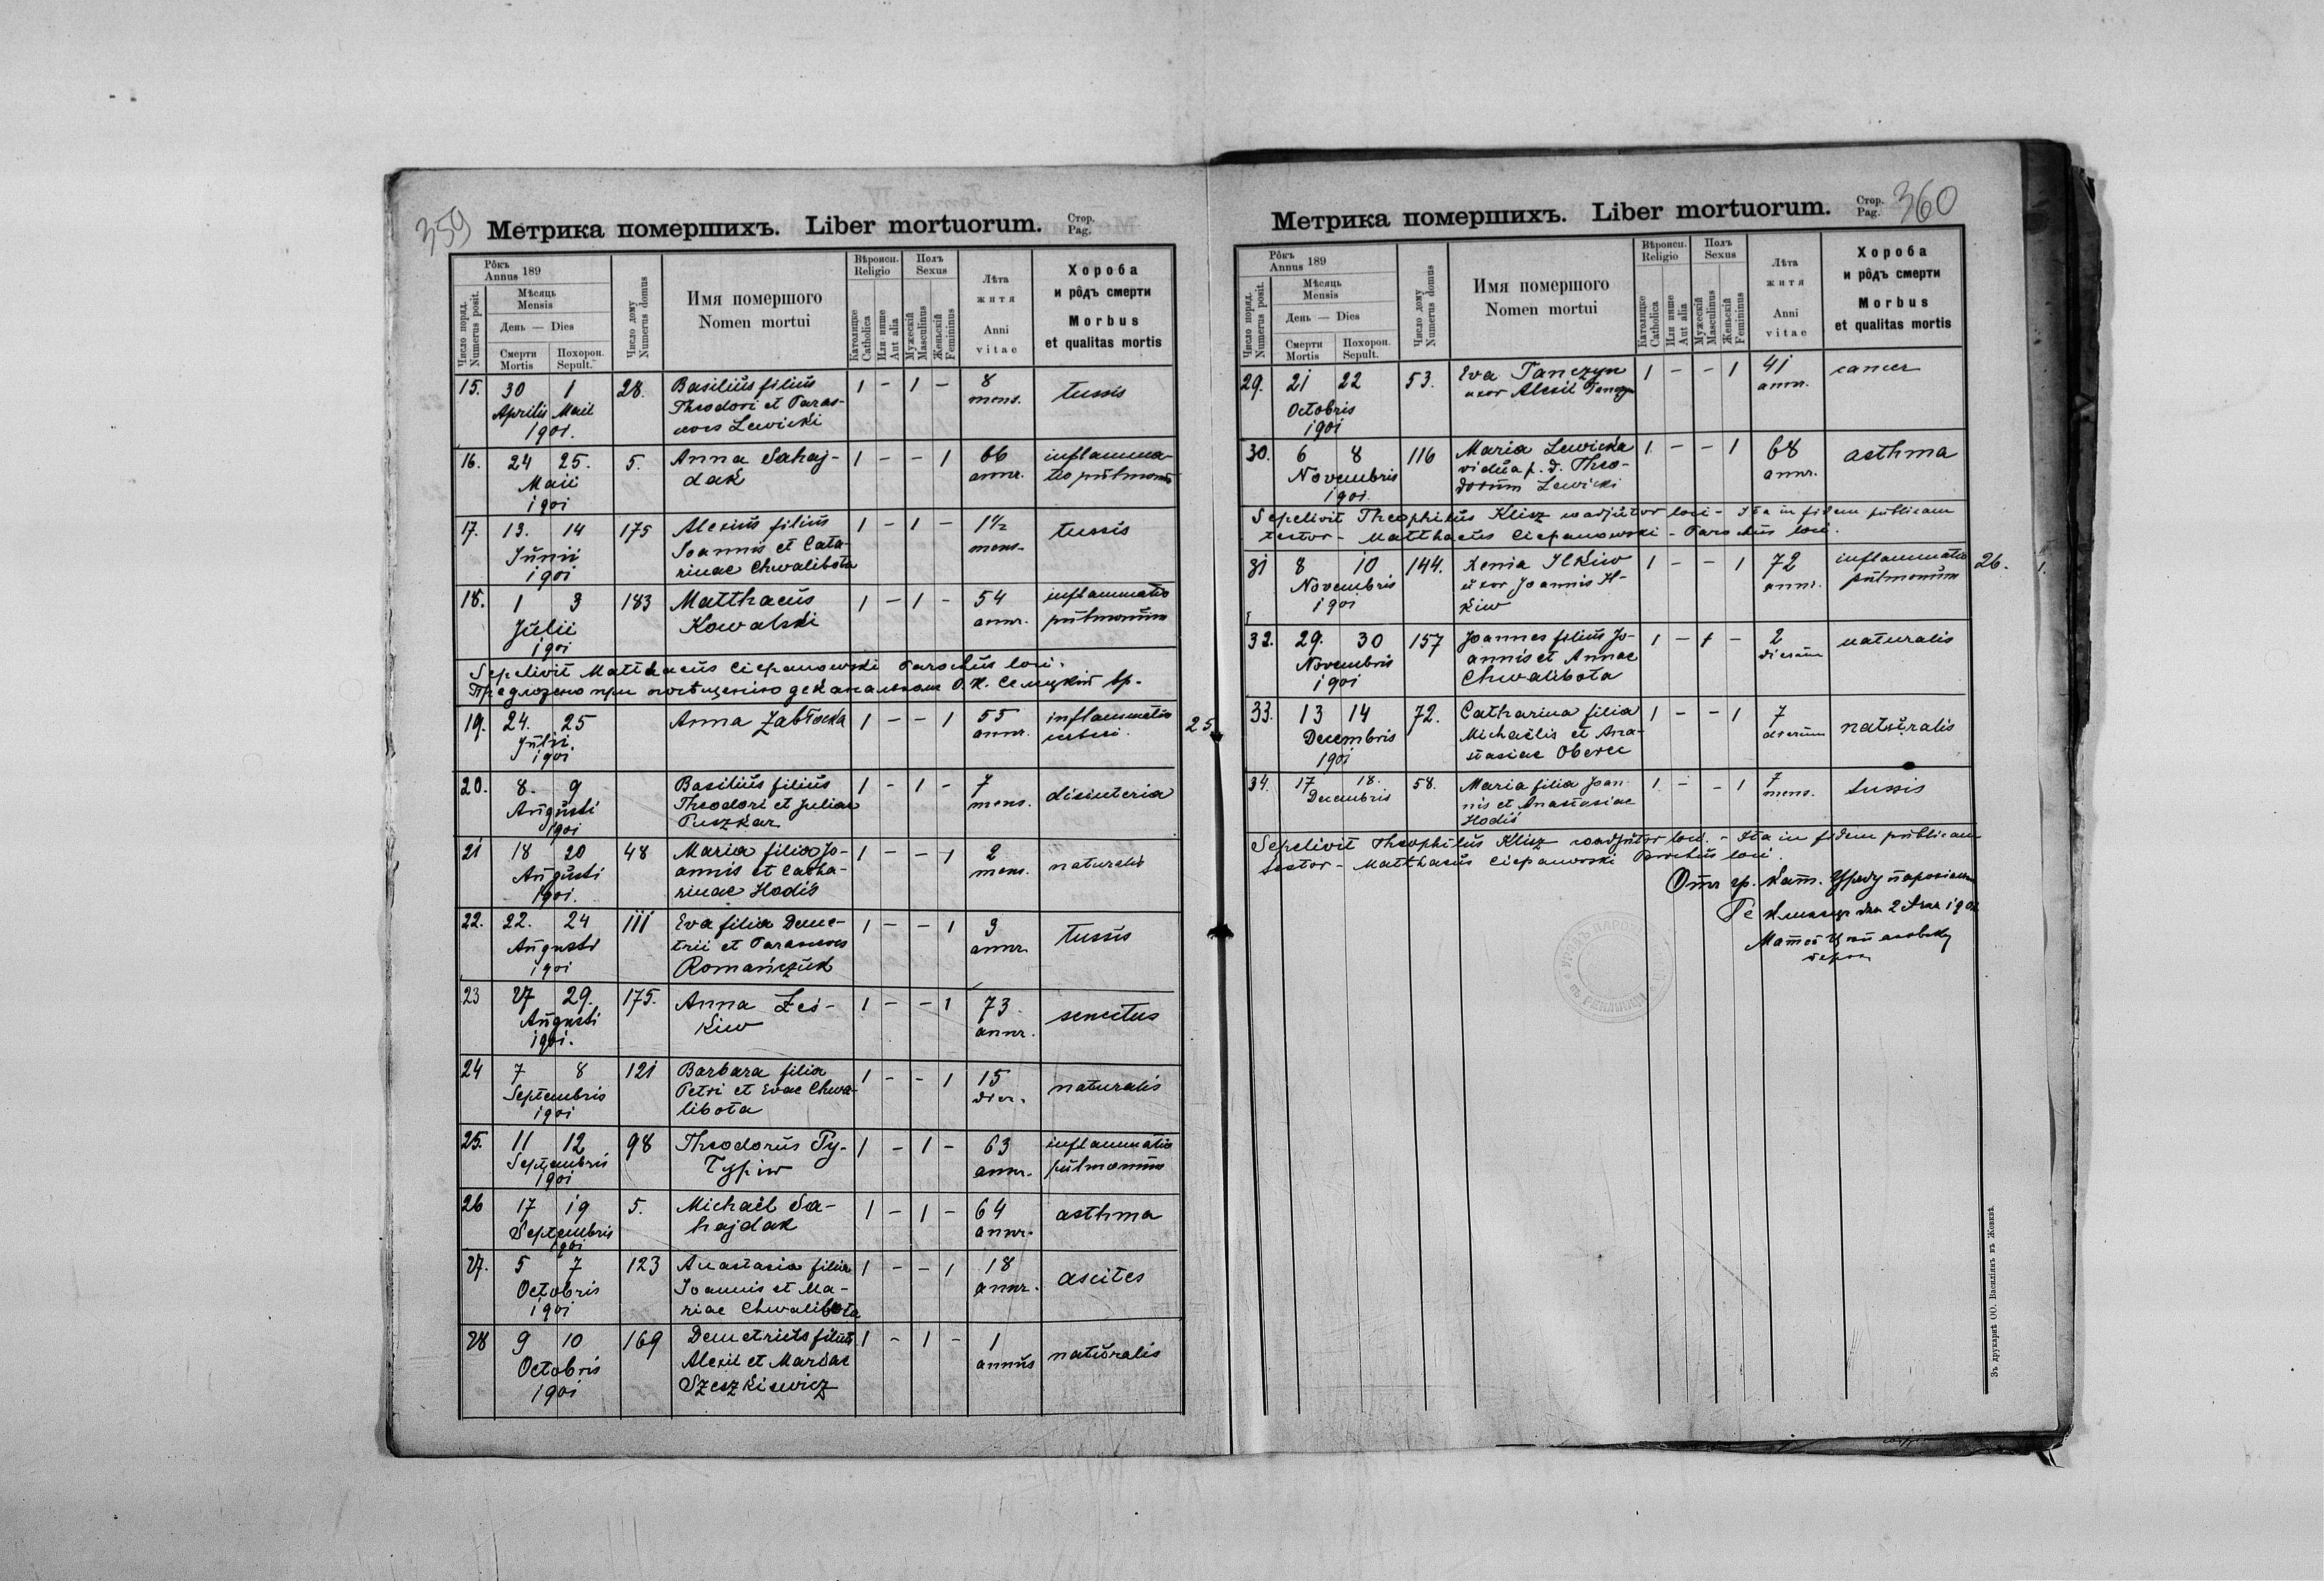 359
Метрика помершихъ. Liber mortuorum. Стор. Pag.
Число поряд. Numerus posit.
Рôкъ Annus 189
Мѣсяць Mensis
День — Dies
Смерти Mortis
Похорон. Sepult.
Число дому Numerus domus
Имя помершого
Nomen mortui
Вѣроисп. Religio
Католицке Catholica
Или инше Aut alia
Полъ Sexus
Мужескій Masculinus
Женьскій Femininus
Лѣта житя
Anni vitae
Хороба
и рôдъ смерти
Morbus
et qualitas mortis
15. 30 1 28. Basilius filius 1 - 1 - 8 tussis
Aprilis Maii Theodori et Paras- mens.
1901. ceves Lewicki
16. 24 25. 5. Anna Sahaj- 1 - - 1 66 inflamma-
Maii dak annr. tio pulmonum
1901
17. 13. 14 175 Alexius filius 1 - 1 - 1½ tussis
Junii Joannis et Catha- mens.
1901 rinae Chwalibota
18. 1 3 183 Matthaeus 1 - 1 - 54 inflammatio
Julii Kowalski annr. pulmonum
1901
Sepelivit Matthaeus Ciepanowski Parochus loci.
Предложено при
19. 24. 25 Anna Zabłocka 1 - - 1 55 inflammatio 25
Julii annr.
1901
20. 8. 9 Basilius filius 1 - 1 - 7 disinteria
Augusti Theodori et Juliae mens.
1901 Puszkar
21 18 20 48 Maria filia Jo- 1 - - 1 2 naturalis
Augusti annis et Catha- mens.
1901. rinae Hodiś
22. 22. 24 111 Eva filia Deme- 1 - - 1 3 tussis
Augusti trii et Parasceves annr.
1901 Romańczuk
23 27 29. 175. Anna Łeś- 1 - - 1 73 senectus
Augusti kiw annr.
1901.
24 7 8 121 Barbara filia 1 - - 1 15 naturalis
Septembris Petri et Evae Chwa- dier.
1901 libota
25. 11 12 98 Theodorus Ty- 1 - 1 - 63 inflammatio
Septembris annr. pulmonum
1901
26 17 19 5. Michaël Sa- 1 - 1 - 64 asthma
Septembris hajdak annr.
1901
27. 5 7 123 Anastasia filia 1 - - 1 18 ascites
Octobris Joannis et Ma- annr.
1901 riae Chwalibota
28 9 10 169 Demetrius filius 1 - 1 - 1 naturalis
Octobris Alexii et Mariae annus
1901 Szeszkiewicz
Метрика помершихъ. Liber mortuorum. Стор. Pag. 360
Число поряд. Numerus posit.
Рôкъ Annus 189
Мѣсяць Mensis
День — Dies
Смерти Mortis
Похорон. Sepult.
Число дому Numerus domus
Имя помершого
Nomen mortui
Вѣроисп. Religio
Католицке Catholica
Или инше Aut alia
Полъ Sexus
Мужескій Masculinus
Женьскій Femininus
Лѣта житя
Anni vitae
Хороба
и рôдъ смерти
Morbus
et qualitas mortis
29. 21 22 53. Eva Panczyn 1 - - 1 41 cancer
Octobris uxor Alexii Panczyn annr.
1901
30. 6 8 116 Maria Lewicka 1 - - 1 68 asthma
Novembris vidua p. d. Theo- annr.
1901. dorum Lewicki
Sepelivit Theophilus Klisz coadjutor loci - Ita in fidem publicam
testor - Matthaeus Ciepanowski - Parochus loci.
31 8 10 144. Xenia Ilkiw 1 - - 1 72 inflammatio 26. 1.
Novembris uxor Joannis Il- annr. pulmonum
1901 kiw
32. 29. 30 157 Joannes filius Jo- 1 - 1 - 2 naturalis
Novembris annis et Annae dierum
1901 Chwalibota
33. 13 14 72. Catharina filia 1 - - 1 7 naturalis
Decembris Michaëlis et Ana- dierum
1901 stasiae Oberec
34. 17 18. 58. Maria filia Joan- 1 - - 1 7 tussis
Decembris nis et Anastasiae mens.
Hodiś
Sepelivit Theophilus Klisz coadjutor loci. - Ita in fidem publicam
testor - Matthaeus Ciepanowski Parochus loci.
Отъ гр. кат. Уряду
Зъ друкарнѣ ОО. Василіянъ въ Жовквѣ.